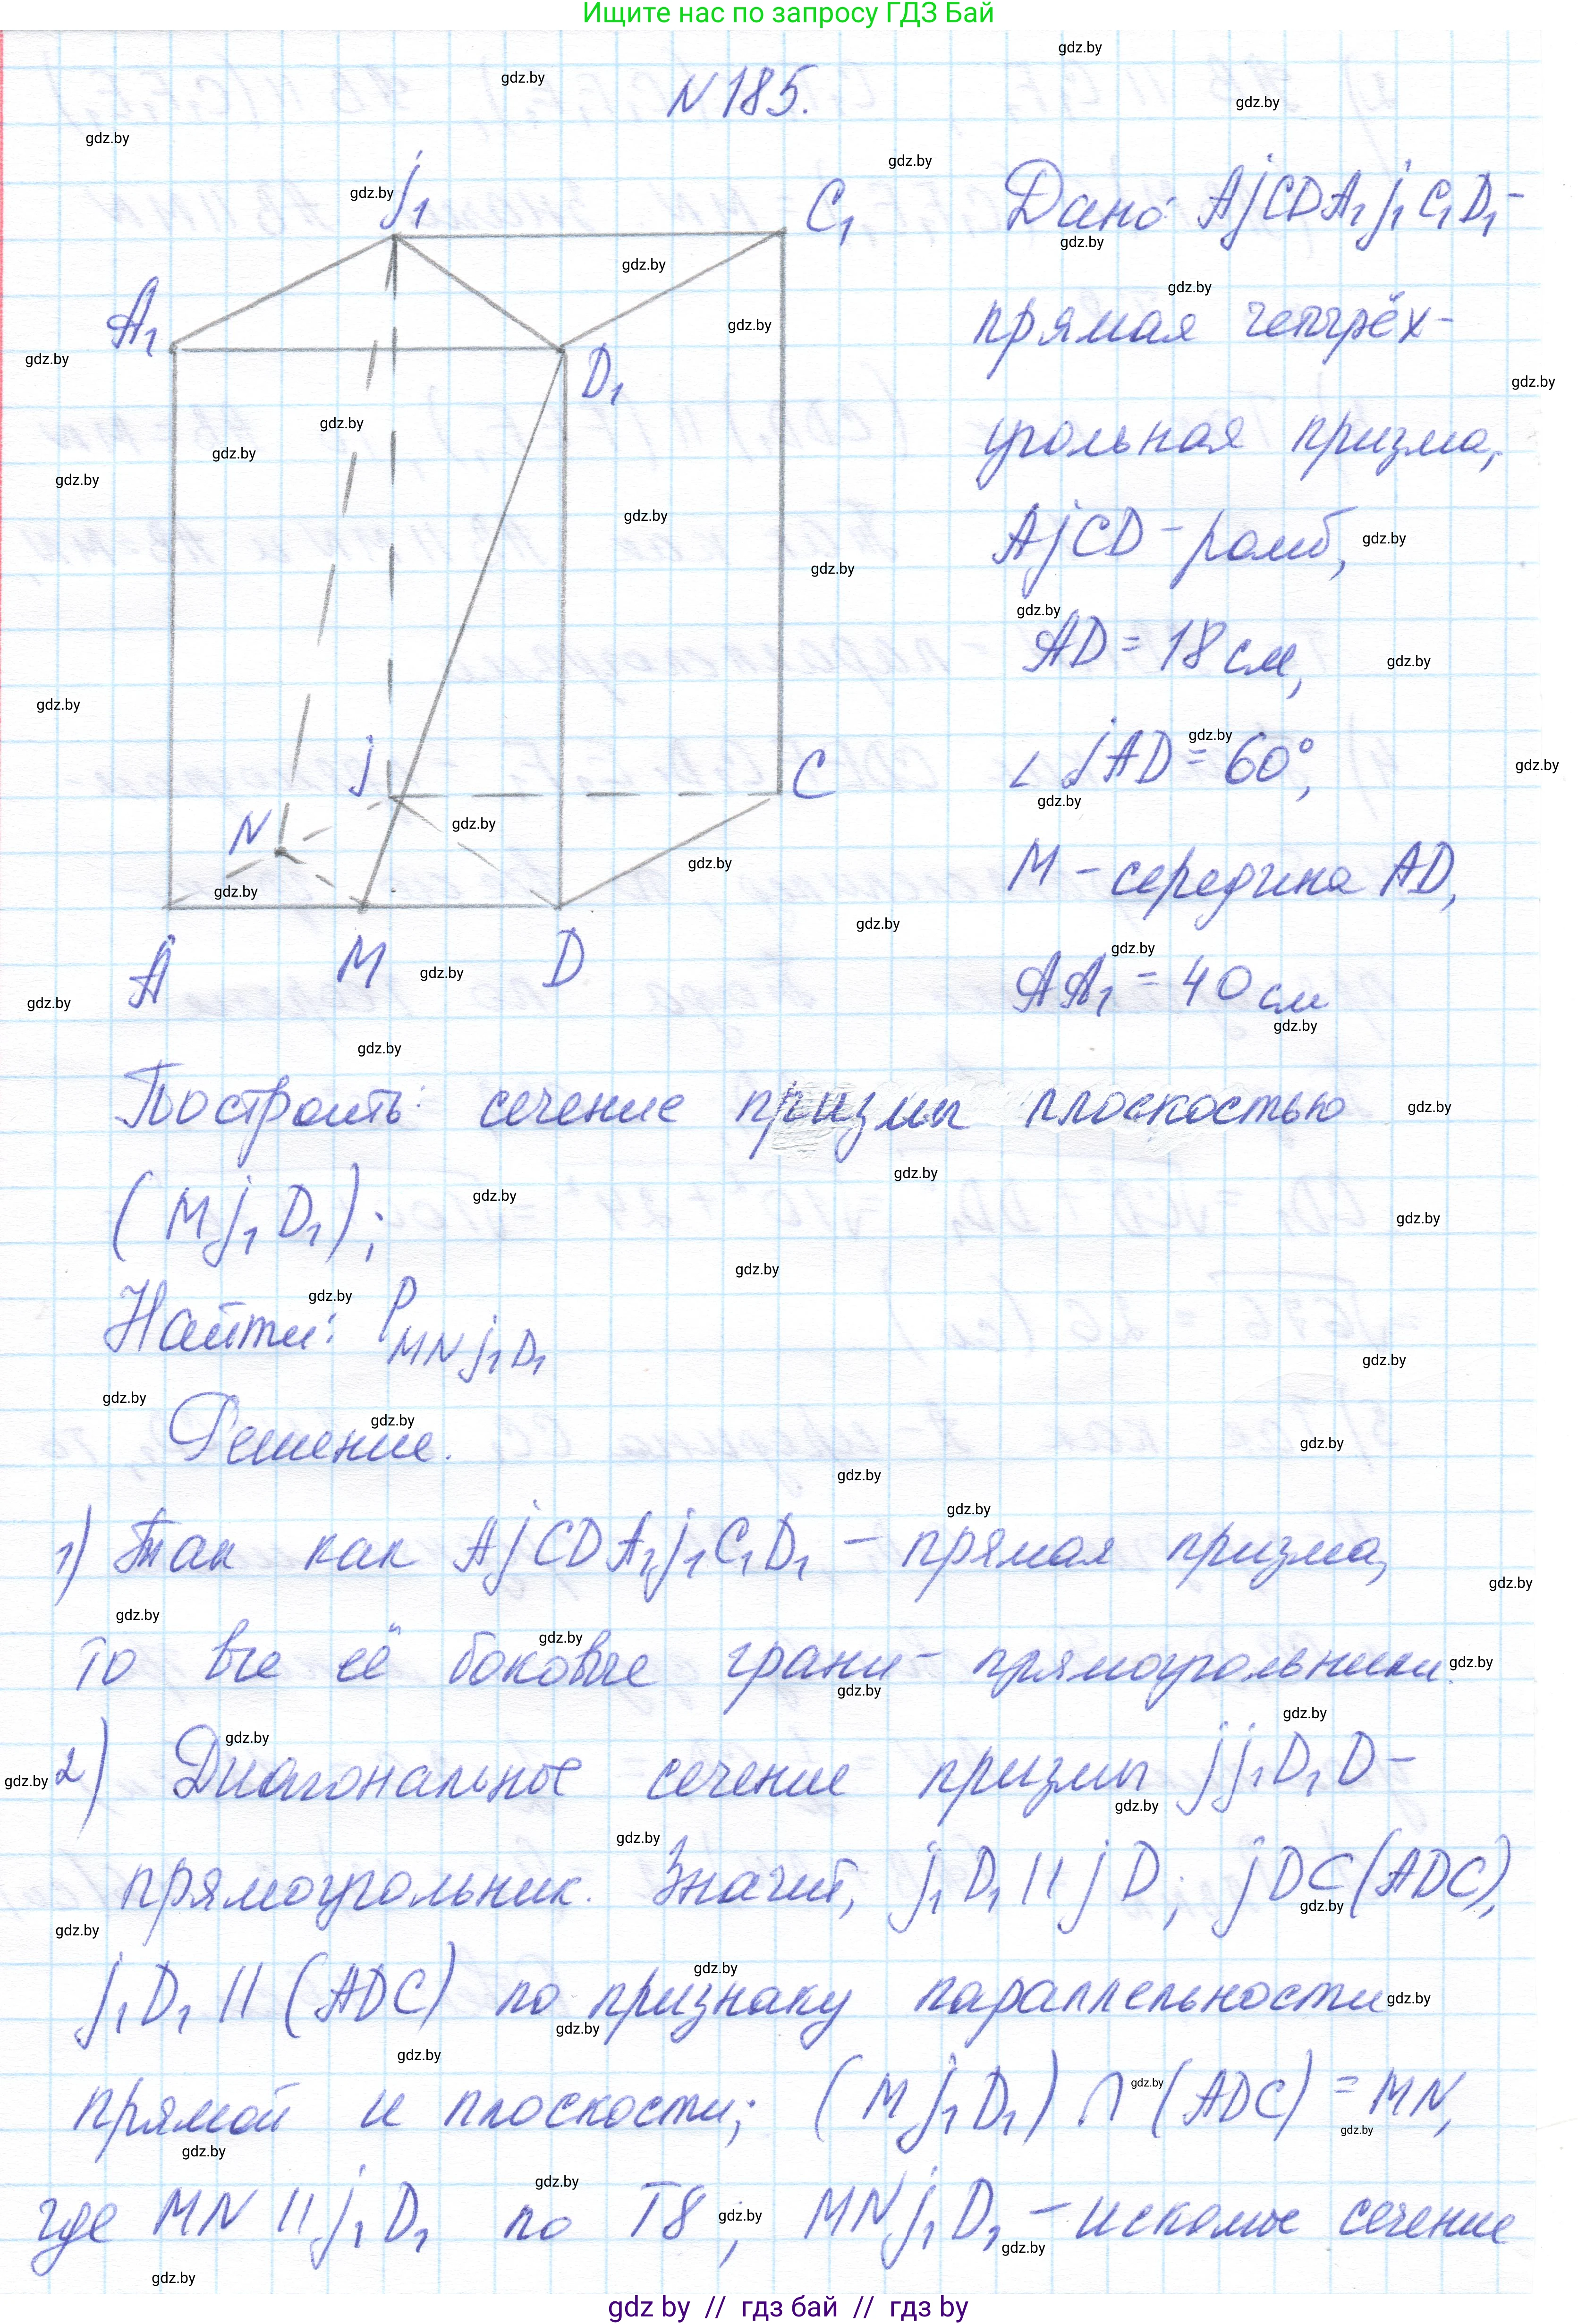 Ищите нас по запросу ГДЗ Бай
N 185.
Дано: AjCDA₁j₁C₁D₁ -
прямая четырёх-
угольная призма,
AjCD - ромб,
AD = 18 см,
∠ jAD = 60°,
M - середина AD,
AA₁ = 40 см
j₁
C₁
A₁
D₁
j
C
N
A
M
D
Построить: сечение призмы плоскостью
(M j₁ D₁);
Найти: P MNj₁D₁
Решение.
1) Так как AjCDA₁j₁C₁D₁ - прямая призма,
то все её боковые грани - прямоугольники.
2) Диагональное сечение призмы jj₁D₁D -
прямоугольник. Значит, j₁D₁ || jD; jD ⊂ (ADC),
j₁D₁ || (ADC) по признаку параллельности
прямой и плоскости; (M j₁D₁) ∩ (ADC) = MN,
где MN || j₁D₁ по T8; MNj₁D₁ - искомое сечение
gdz.by
gdz by // гдз бай // гдз by